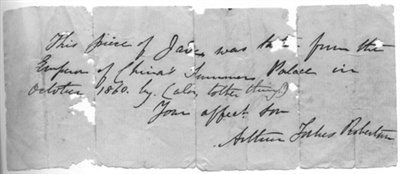 This piece of Jade was taken from the
Emperor of China's Summer Palace in
October 1860. by (along with other things)
Your affect. son
Arthur Forbes Robertson